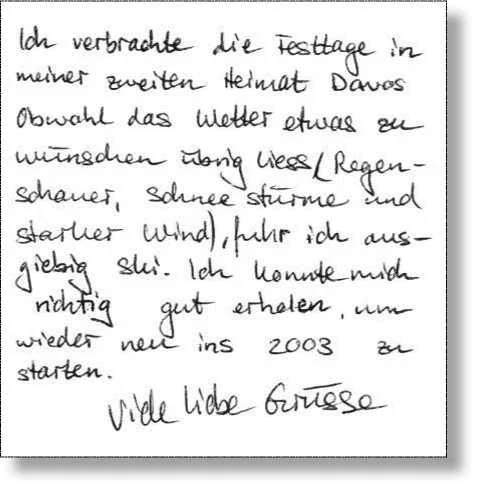 Ich verbrachte die Festtage in
meiner zweiten Heimat Davos
Obwohl das Wetter etwas zu
wünschen übrig liess (Regen-
schauer, Schneestürme und
starker Wind), fuhr ich aus-
giebig Ski. Ich konnte mich
richtig gut erholen, um
wieder neu ins 2003 zu
starten.
Viele liebe Grüsse